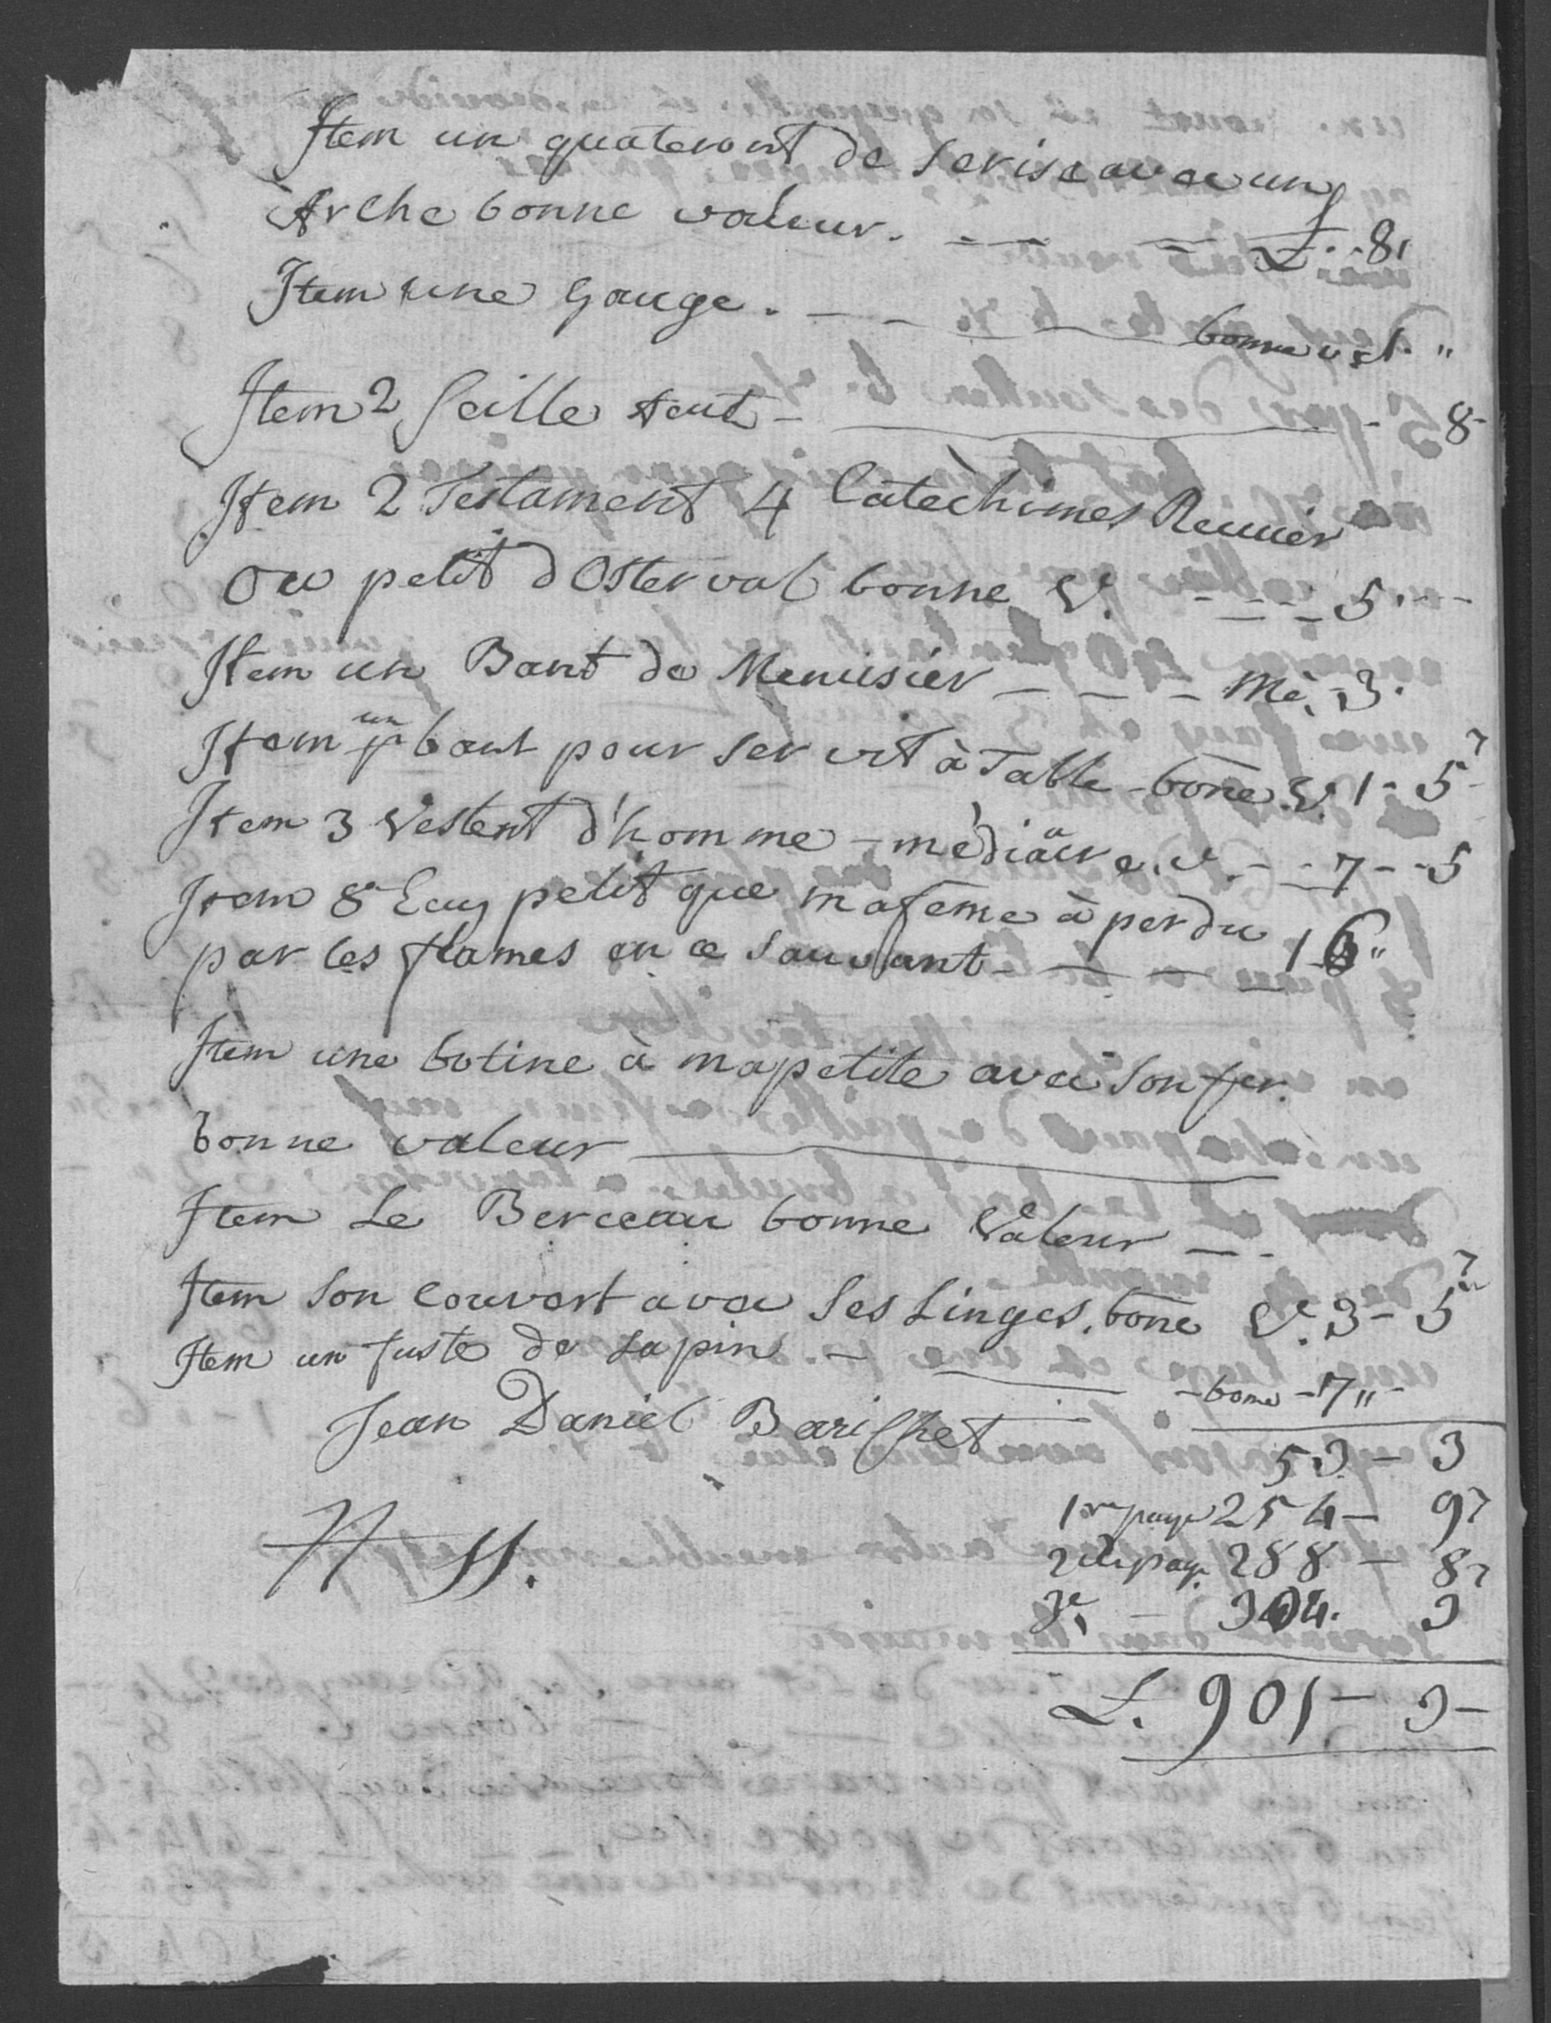 Item un quateront de Serise avec un
Arche bonne valeur. — — — £. - 8,
Item une Gauge. — - — — bonne v 1. "
Item 2 Seille tout - — - 8 -
Item 2 Testament 4 Catèchimes Reunier
Ou petit d Osterval bonne V. - — - — 5. - -
Item un Bant de Menusier — — - Mè. - 3.
Item un bant pour ser vit à Table - bone V. 1 - 5
Item 3 Vestent d'homme - mèdiâcre. v. - - 7 - - 5
Item 8 Ecuy petit que ma feme à perdu
par les flames en ce Sauvant - — — 16 "
Item une botine à ma petite avec Son fer.
bonne valeur —
Item Le Berceau bonne Valeur — -
Item Son Couvert avec Ses Linges, bone Ve. 3 - 5
Item un fuste de Sapin — — - bone - 7 " -
Jean Daniel Barishet
53 - 3
1re page 254 - 9
2de page. 288 - 8
3e, - 304. 3
L. 901 - 3 -